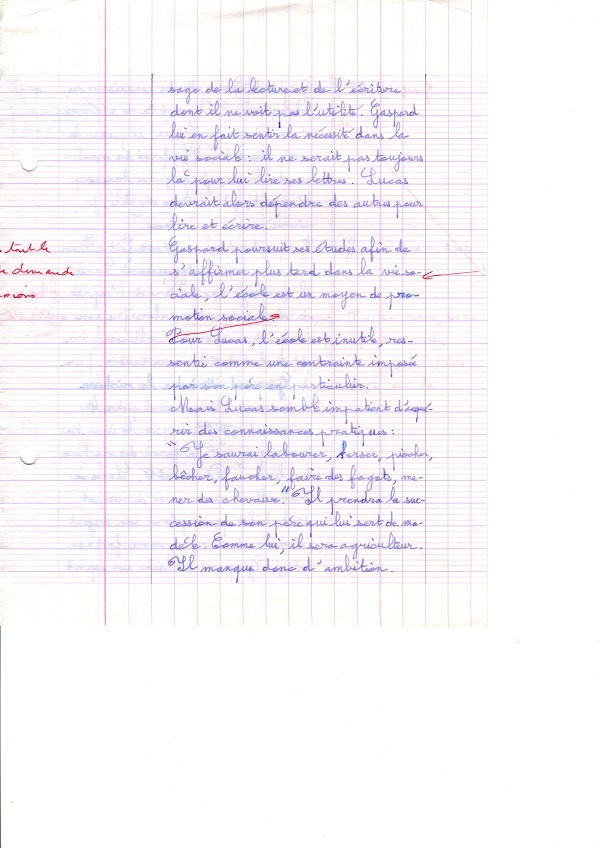 sage de la lecture et de l'écriture
dont il ne voit pas l'utilité. Gaspard
lui en fait sentir la nécessité dans la
vie sociale : il ne serait pas toujours
là pour lui lire ses lettres. Lucas
devrait alors dépendre des autres pour
lire et écrire.
Gaspard poursuit ses études afin de
s'affirmer plus tard dans la vie so-
ciale, l'école est un moyen de pro-
motion sociale.
Pour Lucas, l'école est inutile, res-
sentie comme une contrainte imposée
par son père en particulier.
Mais Lucas semble impatient d'acqué-
rir des connaissances pratiques :
"Je saurai labourer, herser, piocher,
bêcher, faucher, faire des fagots, me-
ner des chevaux." Il prendra la suc-
cession de son père qui lui sert de mo-
dèle. Comme lui, il sera agriculteur.
Il manque donc d'ambition.
tout le
demande